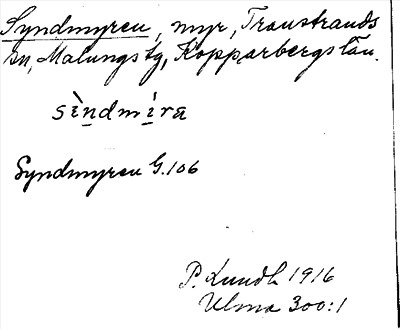 Syndmyren, myr, Transtrands
sn, Malungs tg, Kopparbergs län.
sìndmira
Syndmyren G.106
P. Lundh 1916
Ulma 300:1